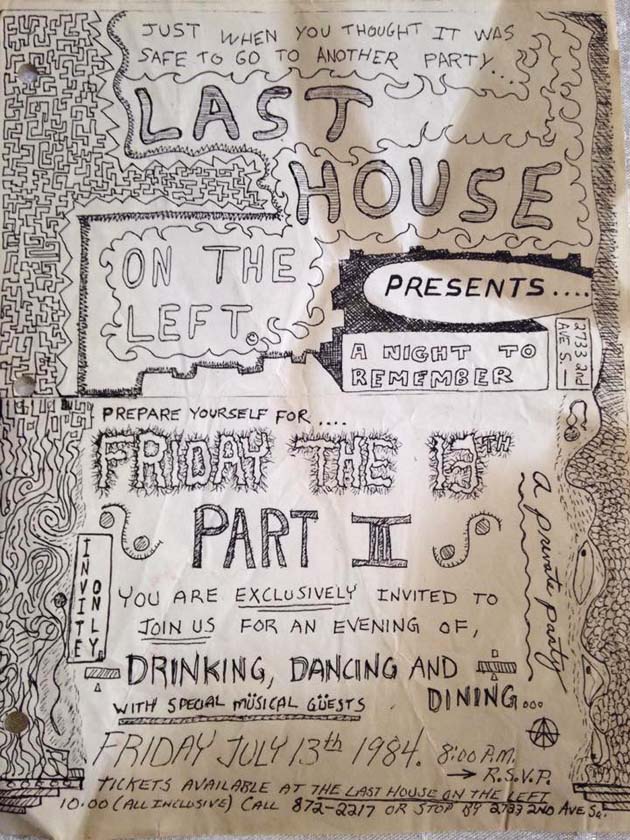 JUST WHEN YOU THOUGHT IT WAS
SAFE TO GO TO ANOTHER PARTY....
LAST
HOUSE
ON THE
LEFT.
PRESENTS....
A NIGHT TO
REMEMBER
2733 2nd
AVE S.
PREPARE YOURSELF FOR ....
FRIDAY THE 13TH
PART II
a private party
INVITE
ONLY
YOU ARE EXCLUSIVELY INVITED TO
JOIN US FOR AN EVENING OF,
DRINKING, DANCING AND
DINING...
WITH SPECIAL MÜSICAL GÜESTS
FRIDAY JULY 13th 1984. 8:00 P.M.
→ R.S.V.P.
TICKETS AVAILABLE AT THE LAST HOUSE ON THE LEFT
10.00 (ALL INCLUSIVE) CALL 872-2217 OR STOP BY 2733 2ND AVE So.